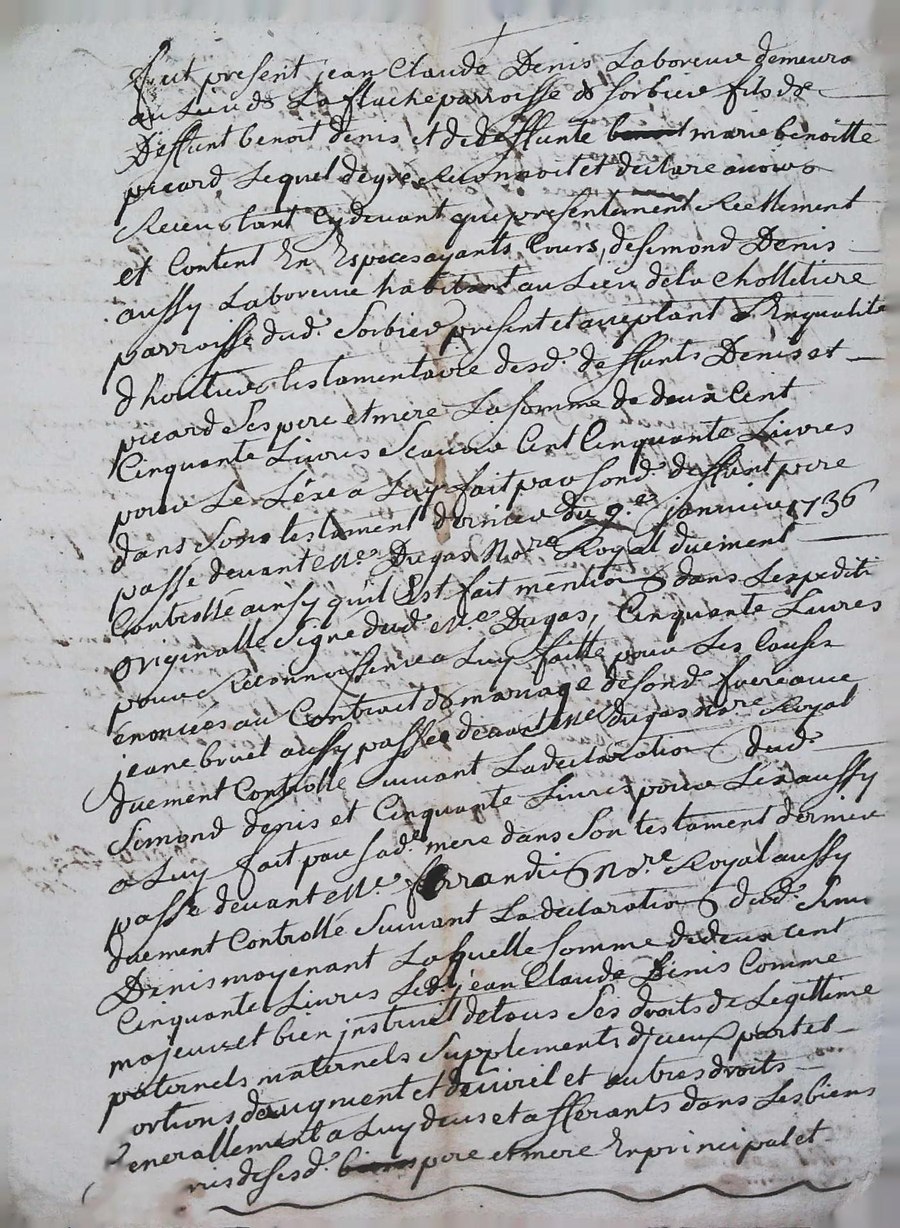 fut present jean Claude Denis Laboreur demeura
au Lieu de La flache parroisse de sorbier fils de
Deffunt benoit denis et de deffunte marie benoitte
picard Lequel de gré Reconnoit et declare avoir
Receu tant Cy devant que presentement Reellement
et Content En Especes ayants Cours, de simond Denis
aussy Laboreur habitant au Lieu de la Cholletiere
parroisse dud. Sorbier present et aceptant Enqualité
d'heritier testamentaire desd. deffunts Denis et
picard Ses pere et mere La somme de deux Cent
Cinquante Livres Scavoir Cent Cinquante Livres
pour Le Léxe a Luy fait par sond. deffunt pere
dans Son testament dernier du 9.e janvier 1736
passé devant Me. Dugas No.re Royal duement
Controllé ainsy quil Est fait mention dans Lexpediti
Originalle Signé dud. Me. Dugas, Cinquante Livres
pour Reconnoissence a Luy faitte pour Les Causes
enoncées au Contract de mariage de sond. frere avec
jeane bruet aussy passé devant Me dugas No.re Royal
duement Controllé suivant La declaration dud.
Simond denis et Cinquante Livres pour Lexe aussy
a Luy fait par sad.e mere dans Son testament dernier
passé devant Me. No.re Royal aussy
duement Controllé Suivant La declaration dud. Simo
Denis moyenant Laquelle Somme de deux cent
Cinquante Livres Led. jean Claude Denis Comme
majeur et bien instruit de tous Ses droits de Legittime
paternels maternels Supplements d'jceux part et
ortions d'augment et de virel et autres droits
enerallement a Luy deus et afferants dans Les biens
de sesd. pere et mere En principal et